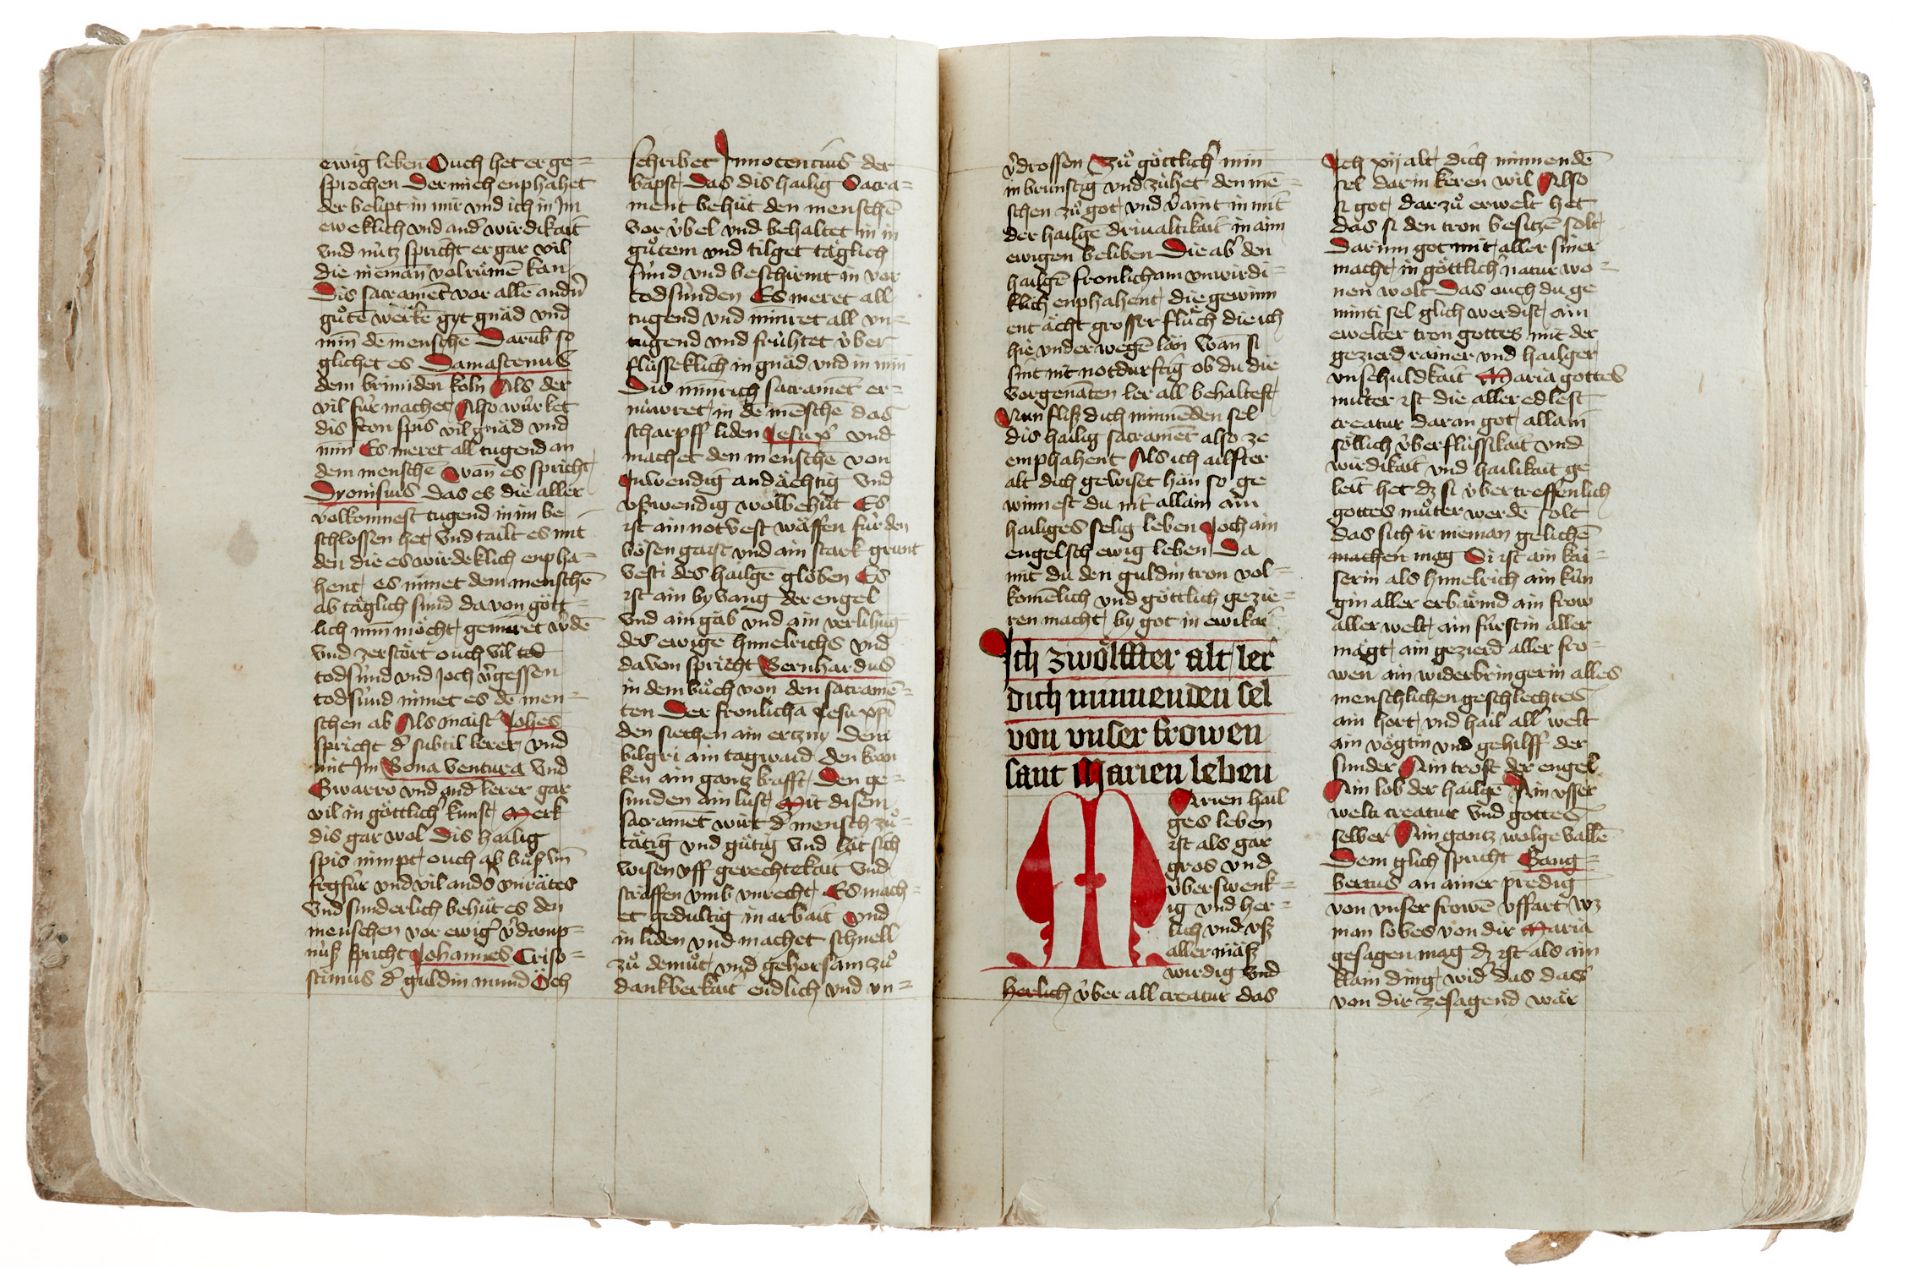 ewig leben Ouch het er ge=
sprochen Der mich enphahet
der belipt in mir vnd ich in Im
eweklich vnd and' wirdikait
vnd nu̍tz spricht er gar vil
die nieman volru̍men kan
Dis sacramēt vor allē andn̄
gu̍tē werkē gyt gnäd vnd
min̄ dē mensche Darūb so
glichet es Damascenus
dem brinnden koln Als der
vil fu̍r machet Also wu̍rket
dis fron spis vil gnäd vnd
min̄ Es meret all tugend an
dem menschē Wan̄ es spricht
Dyonisius Das es die aller
volkomnest tugend in im be
schlossen het vnd tailt es mit
den die es wirdeklich enpha=
hent es nimet dem menschē
ab täglich su̍nd da von gött=
lich min̄ möcht gemiret w'dē
vnd zerstört ouch vil tod
todsu̍nd vnd joch v'gessen
todsu̍nd nimet es dē men=
schen ab Als maist Johēs
spricht d' subtil lerer vnd
mit Im Bona ventura vnd
Gwarro vnd and lerer gar
vil in göttlich' kunst Merk
dis gar wol Dis hailig
spis nimpt ouch ab bu̍ß im̄
fegfu̍r vnd vil and's vnrätes
vnd sunderlich behu̍t es den
menschen vor ewig' v'damp=
nu̍ß spricht Johannes Criso=
stimus d' guldin mund Och
schribet Innocencius der
bäpst Das dis hailig Sacra=
ment behu̍t den menschē
vor v̍bel vnd behaltet in in
gu̍tem vnd tilget täglich
su̍nd vnd beschirmt in vor
todsu̍nden Es meret all
tugend vnd minret all vn=
tugend vnd fru̍htet v̍ber
flu̍sseklich in gnäd vnd in min̄
Dis min̄rich sacramēt er=
nu̍wret in dē mēsche das
scharpff liden Jesu xp̄i vnd
machet den mensche von
Inwendig andächtig vnd
vswendig wolbehu̍t Es
ist ain notvest wäffen fu̍r den
bösen gaist vnd ain stark grunt
vesti des hailgē globen Es
ist ain byvang der engel
vnd ain gäb vnd ain verlihūg
des ewige himelrichs vnd
davon spricht Bernhardus
in dem bu̍ch von den sacramē=
ten Der fronlichā Jesu xp̄i
den siechen ain ertzny dem
bilgri ain tagwaid den kran
ken ain gantz krafft Den ge=
sunden ain lust Mit disem
sacramēt wirt d' mensch zu̍=
tätig vnd gu̍tig vnd lät sich
wisen vff gerechtekait vnd
sträffen vmb vnrecht Es mach=
et gedultig in arbait vnd
in liden vnd machet schnell
zu̍ demu̍t vnd gehorsam zu̍
dankberkait endlich vnd vn=
v'drossen Zu̍ göttlich' min̄
inbru̍nstig vnd zu̍het den mē=
schen zu̍ got vnd v'aint in mit
der hailge drivaltikait in ainn
ewigen beliben Die ab' den
hailgē fronlicham vnwirdi=
klich enphahent die gewinn
ent ächt grosser flu̍ch die ich
hie vnder wegē län Wan si
sint nit notdurftig ob du die
vorgenanten ler all behaltest
Nun fliß dich min̄nēden sel
dis hailig sacramēt also ze
emphahent Als ich ailfter
alt dich gewiset hän so ge
winnest du nit allain ain
hailiges selig leben Joch ain
engelsch ewig leben Da
mit du den guldin tron vol=
komēlich vnd göttlich gezie=
ren macht by got in ewikait
Ich zwölffter alt ler
dich minnenden sel
von vnser frowen
sant Marien leben
Marien hail
ges leben
ist als gar
gros vnd
v̍berswenk=
ig vnd her=
lich vnd vß
aller mäß
wirdig vnd
herlich v̍ber all creatur das
Ich xij alt dich minnendē
sel dar in keren wil Also
si got dar zu̍ erwelt het
das si den tron besitzē solt
Dar inn got mit aller siner
macht in göttlich' natur wo=
nen wolt Das ouch du ge
minti sel glich werdist ain
ewelter tron gottes mit der
gezierd rainer vnd hailger
vnschuldkait Maria gottes
muter ist die aller edlest
creatur daran got allain
söllich v̍berflu̍ssikait vnd
wirdikait vnd hailikait ge
leit het dz si v̍bertreffenlich
gottes mu̍ter werdē solt
das sich ir nieman gelichē
machen mag Si ist ain kai=
serin als himelrich ain ku̍n
gin aller erbärmd ain frow
aller welt ain fu̍rstin aller
mägt ain gezierd aller fro=
wen ain widerbringerin alles
menschlichen geschlechtes
ain hort vnd hail all' welt
ain vögtin vnd gehilff der
sunder Ain trost der engel
Ain lob der hailgē Ain vsser
welti creatur vnd gottes
selber Ain gantz wolgevallē
Dem glich spricht Gang=
bertus an ainer predig
von vnser frowē vffart wz
man lobes von dir Maria
gesagen mag dz ist als ain
klain ding wid' das das
von dir ze sagend wär